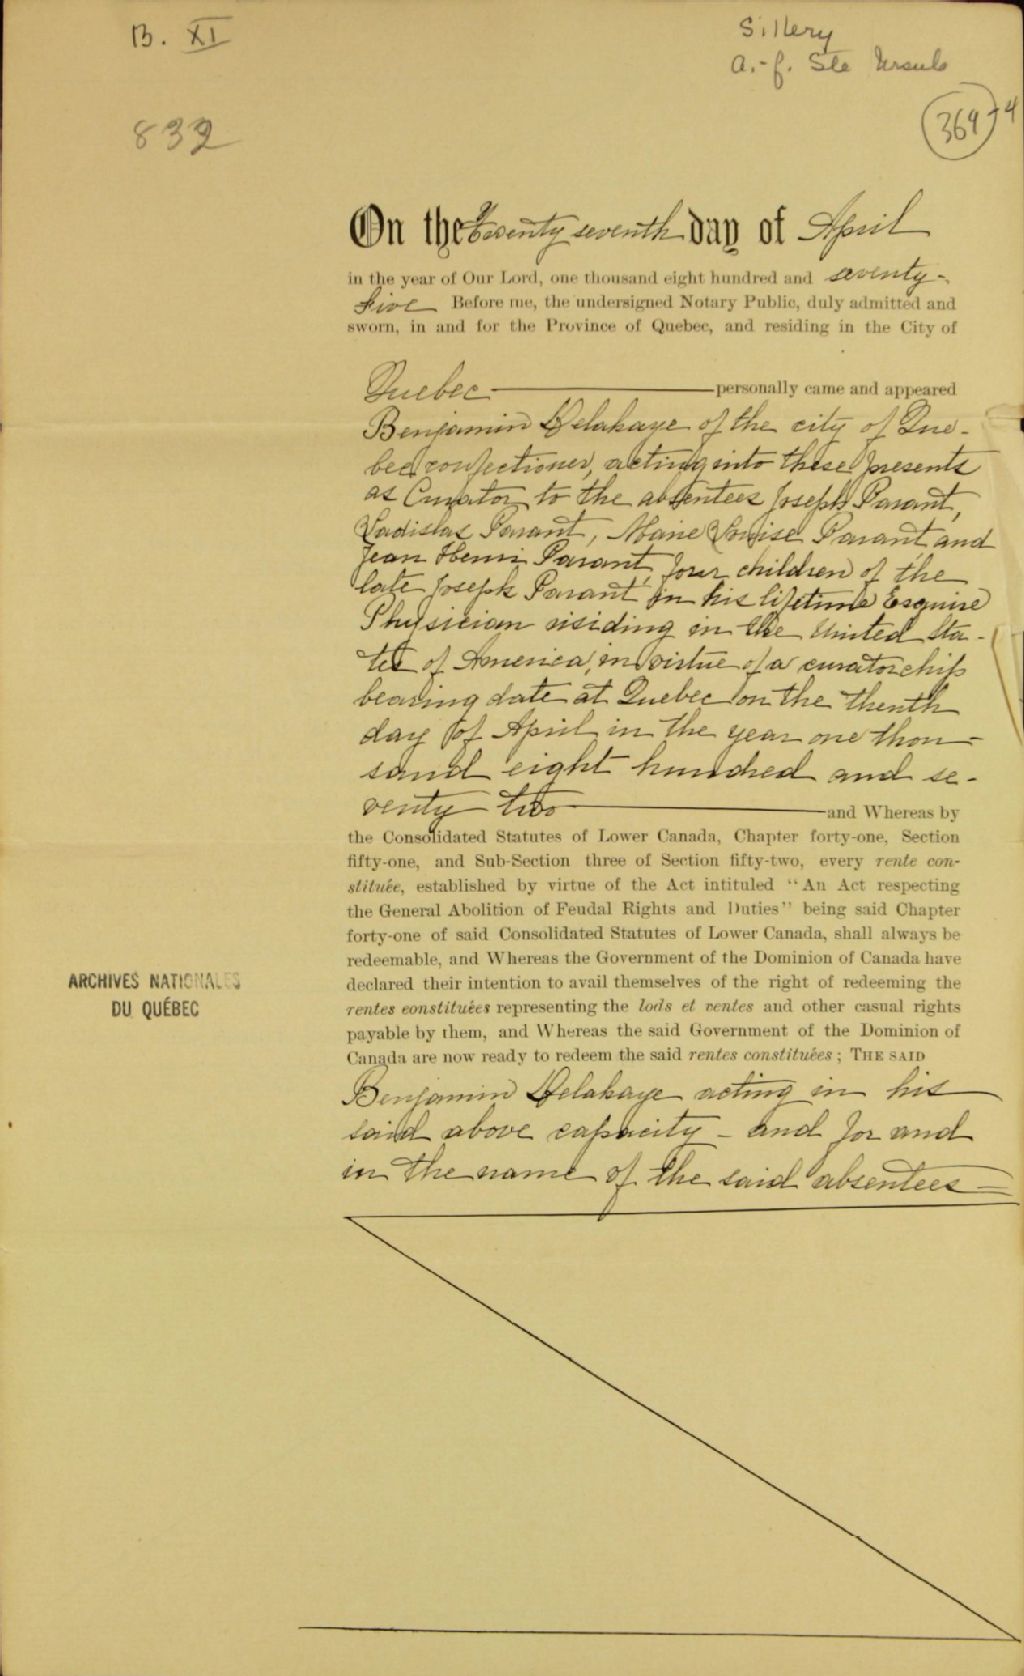 B. XI
Sillery
a.-f. Ste Ursule
832
369-4
On the Twenty seventh day of April
in the year of Our Lord, one thousand eight hundred and seventy-
five Before me, the undersigned Notary Public, duly admitted and
sworn, in and for the Province of Quebec, and residing in the City of
Quebec personally came and appeared
Benjamin Delahaye of the city of Que-
bec confectioner, acting into these presents
as Curator to the absentees Joseph Parant,
Ladislas Parant, Marie Louise Parant and
Jean Henri Parant, four children of the
late Joseph Parant in his lifetime Esquire
Physician residing in the United Sta-
tes of America, in virtue of a curatorship
bearing date at Quebec on the thenth
day of April in the year one thou-
sand eight hundred and se-
venty two and Whereas by
the Consolidated Statutes of Lower Canada, Chapter forty-one, Section
fifty-one, and Sub-Section three of Section fifty-two, every rente con-
stituée, established by virtue of the Act intituled "An Act respecting
the General Abolition of Feudal Rights and Duties" being said Chapter
forty-one of said Consolidated Statutes of Lower Canada, shall always be
redeemable, and Whereas the Government of the Dominion of Canada have
declared their intention to avail themselves of the right of redeeming the
rentes constituées representing the lods et ventes and other casual rights
payable by them, and Whereas the said Government of the Dominion of
Canada are now ready to redeem the said rentes constituées ; THE SAID
ARCHIVES NATIONALES
DU QUÉBEC
Benjamin Delahaye acting in his
said above capacity - and for and
in the name of the said absentees